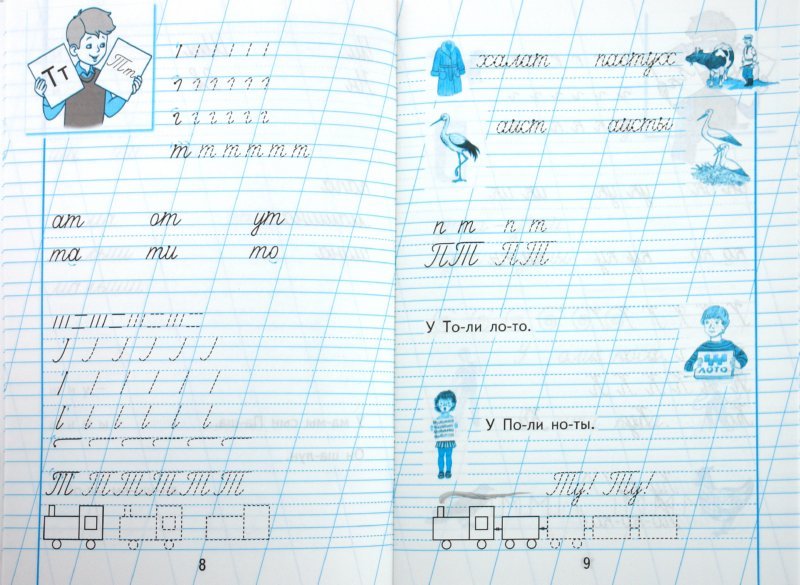 Тт Тт
т т т т т т
ат от ут
та ти то
Т Т Т Т Т Т
8
халат пастух
аист аисты
п т п т
П Т П Т
У То-ли ло-то.
ЛОТО
У По-ли но-ты.
Ту! Ту!
9